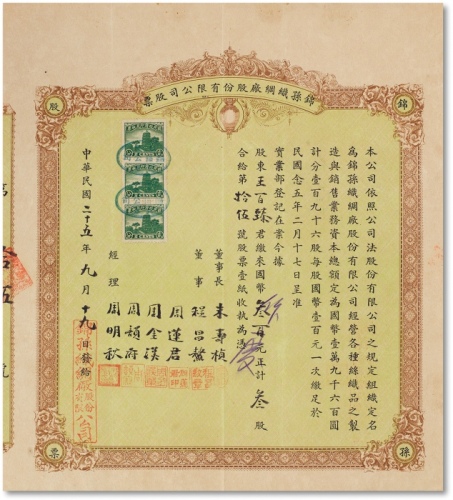 錦孫織綢廠股份有限公司股票
錦
孫
股
票
本公司依照公司法股份有限公司之規定組織定名
為錦孫織綢廠股份有限公司經營各種絲織品之製
造與銷售業務資本總額定為國幣壹萬九千六百圓
計分壹百九十六股每股國幣壹百元一次繳足於
民國念五年二月十七日呈准
實業部登記在案今據
股東王百臻君繳來國幣叁百元正計叁股
合給第拾伍號股票壹紙收執為憑
董事長
董事
經理
周蓮君
周金漢
周頌府
周明秋
中華民國二十五年九月十九日發給